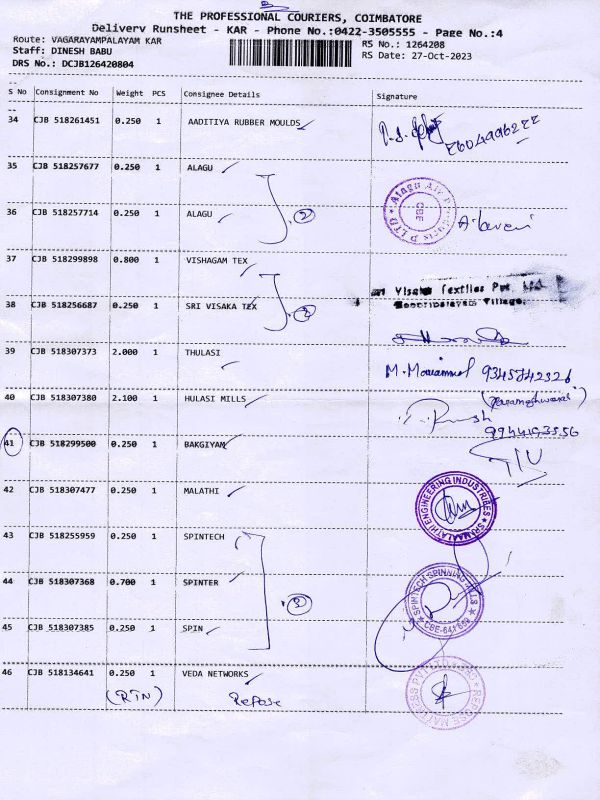 THE PROFESSIONAL COURIERS, COIMBATORE
Delivery Runsheet - KAR - Phone No.:0422-3505555 - Page No.:4
Route: VAGARAYAMPALAYAM KAR
RS No.: 1264208
Staff: DINESH BABU
RS Date: 27-Oct-2023
DRS No.: DCJB126420804
S No Consignment No Weight PCS Consignee Details Signature
34 CJB 518261451 0.250 1 AADITIYA RUBBER MOULDS
35 CJB 518257677 0.250 1 ALAGU
2
36 CJB 518257714 0.250 1 ALAGU
37 CJB 518299898 0.800 1 VISHAGAM TEX
Visaka Textiles Pvt. Ltd
Village.
38 CJB 518256687 0.250 1 SRI VISAKA TEX
39 CJB 518307373 2.000 1 THULASI
M. 9345742326
40 CJB 518307380 2.100 1 HULASI MILLS
41 CJB 518299500 0.250 1 BAKGIYAM
42 CJB 518307477 0.250 1 MALATHI
SRI MALATHI ENGINEERING INDUSTRIES
43 CJB 518255959 0.250 1 SPINTECH
44 CJB 518307368 0.700 1 SPINTER
3
SPINTECH SPINNING MILLS
45 CJB 518307385 0.250 1 SPIN
46 CJB 518134641 0.250 1 VEDA NETWORKS
(RTN) Repose